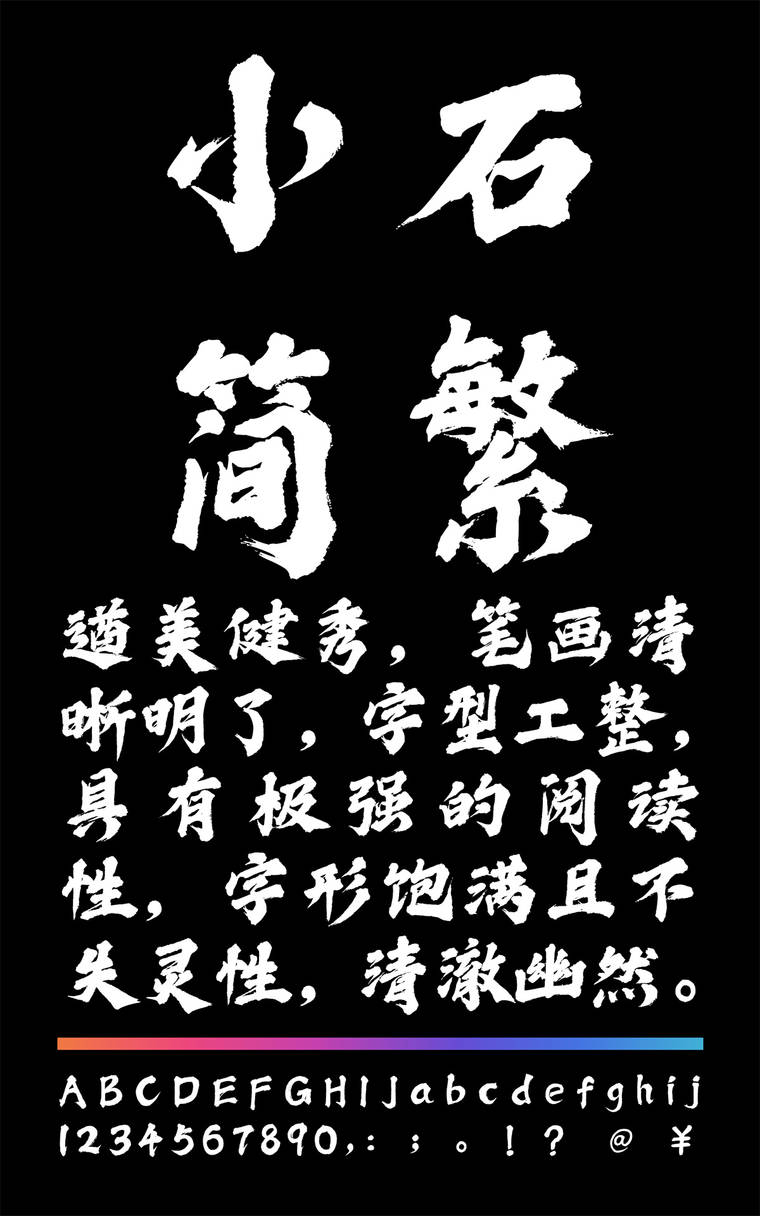 小石
简繁
遒美健秀，笔画清
晰明了，字型工整，
具有极强的阅读
性，字形饱满且不
失灵性，清澈幽然。
ABCDEFGHIJabcdefghij
1234567890,:;。!?@¥